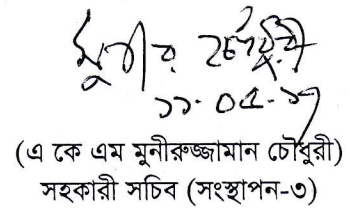 মুনীর চৌধুরী
১১.০৫.১৭
(এ কে এম মুনীরুজ্জামান চৌধুরী)
সহকারী সচিব (সংস্থাপন-৩)